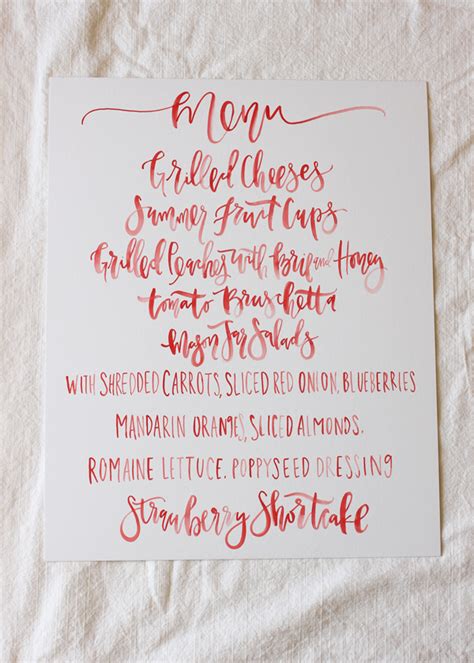 Menu
Grilled Cheeses
Summer Fruit Cups
Grilled Peaches with Brie and Honey
tomato Bruschetta
Mason Jar Salads
WITH SHREDDED CARROTS, SLICED RED ONION, BLUEBERRIES
MANDARIN ORANGES, SLICED ALMONDS,
ROMAINE LETTUCE, POPPYSEED DRESSING
Strawberry Shortcake